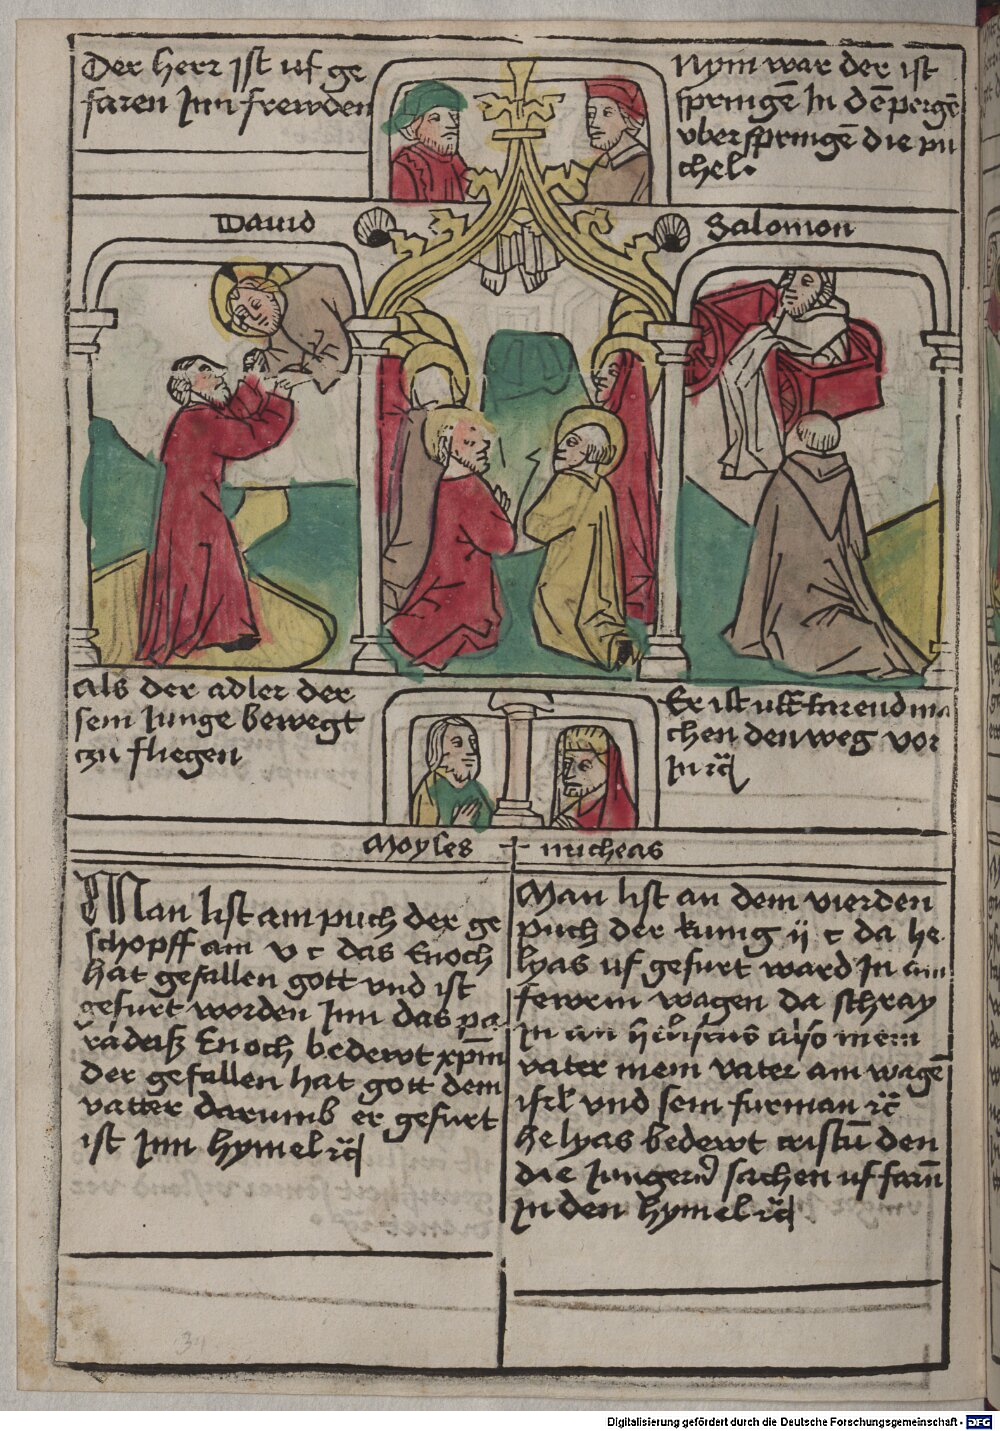 Der herr jst uf ge
faren Jnn frewden
Nym war der ist
springē In dē pergē
vberspringē die pu
chel.
Dauid
Salomon
Als der adler der
sein Junge bewegt
czu fliegen
Er ist uff farend ma
chen den weg vor
In ꝛc̈
Moyses
micheas
Man list am puch der ge
schopff am v c das Enoch
hat gefallen gott vnd ist
gefurt worden Jnn das pa
radeiß Enoch bedewt xp̄m
der gefallen hat gott dem
vatter darumb er gefurt
ist Jnn hymel ꝛc̈
Man list an dem vierden
puch der kunig ij c da he
lyas uf gefurt ward In ain
fewrin wagen da schray
In an also mein
vater mein vater am wagē
isrl vnd sein furman ꝛc̈
helyas bedewt cristū den
die Junger sachen uf farn̄
In den hymel ꝛc̈
34
Digitalisierung gefördert durch die Deutsche Forschungsgemeinschaft - DFG